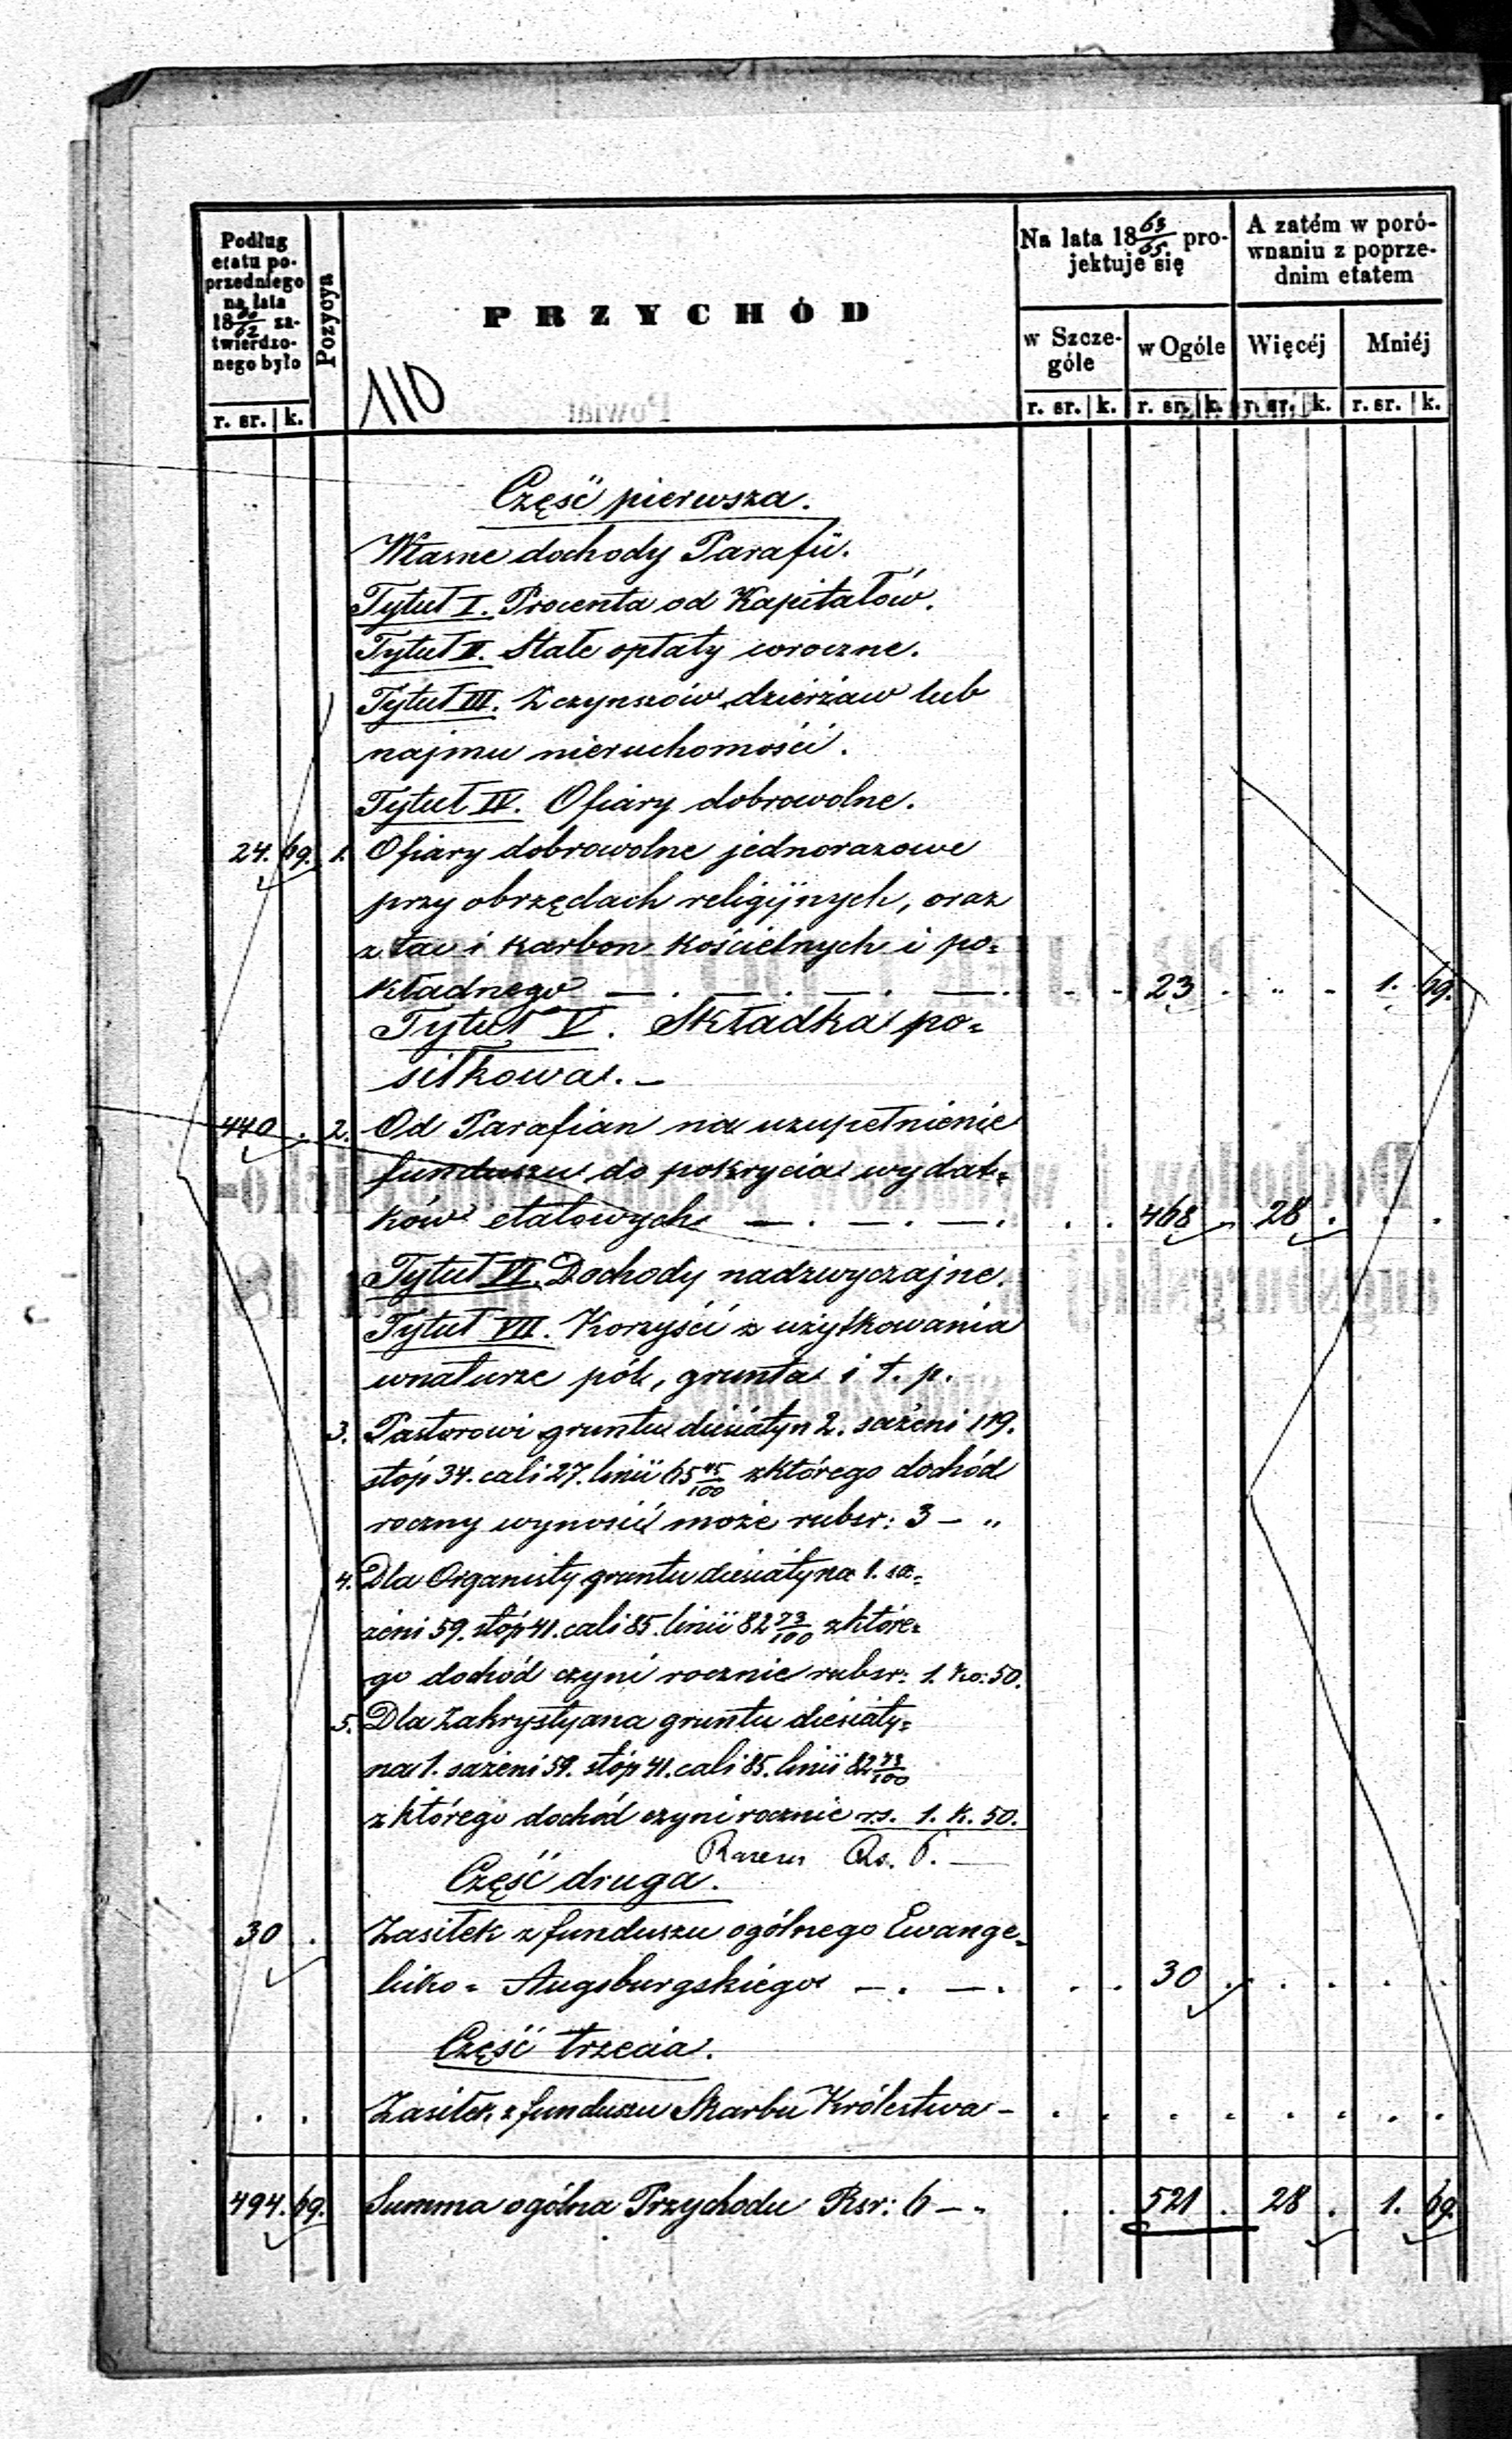 Podług
etatu po-
przedniego
na lata
18 60/62 za-
twierdzo-
nego było
r. sr. k.
Pozycya
PRZYCHÓD
110
Na lata 18 63/65 pro-
jektuje się
w Szcze-
góle
r. sr. k.
w Ogóle
r. sr. k.
A zatém w poró-
wnaniu z poprze-
dnim etatem
Więcéj
r. sr. k.
Mniéj
r. sr. k.
Część pierwsza.
Własne dochody Parafii.
Tytuł I. Procenta od Kapitałów.
Tytuł II. Stałe opłaty coroczne.
Tytuł III. Z czynszów, dzierżaw lub
najmu nieruchomości.
Tytuł IV. Ofiary dobrowolne.
24. 69. 1. Ofiary dobrowolne jednorazowe
przy obrzędach religijnych, oraz
z ław i karbon kościelnych i po=
kładnego — . — . — . — . . . 23 . „ - 1. 69.
Tytuł V. Składka po=
siłkowa. —
440 . 2. Od Parafian na uzupełnienie
funduszu do pokrycia wydat=
ków etatowych — . — . — . . . 468 . 28 . . .
Tytuł VI. Dochody nadzwyczajne.
Tytuł VII. Korzyści z użytkowania
wnaturze pól, grunta i t. p.
3. Pastorowi gruntu diesiatyn 2. sażeni 119.
stóp 34. cali 27. linii 65 45/100 z którego dochód
roczny wynosić może rubsr: 3 — „
4. Dla Organisty gruntu diesiatyna 1. sa=
żeni 59. stóp 41. cali 85. linii 82 73/100 z które=
go dochód czyni rocznie rubsr: 1. ko: 50.
5. Dla Zakrystyana gruntu diesiaty=
na 1. sażeni 59. stóp 41. cali 85. linii 82 73/100
z którego dochód czyni rocznie rs. 1. k. 50.
Razem Rs. 6. —
Część druga.
30 . Zasiłek z funduszu ogólnego Ewange=
licko = Augsburgskiego — . — . . . 30 . . . . .
Część trzecia.
. . Zasiłek z funduszu Skarbu Królestwa — . . . . . . . .
494. 69. Summa ogólna Przychodu Rsr: 6 — „ . . 521 . 28 . 1. 69.